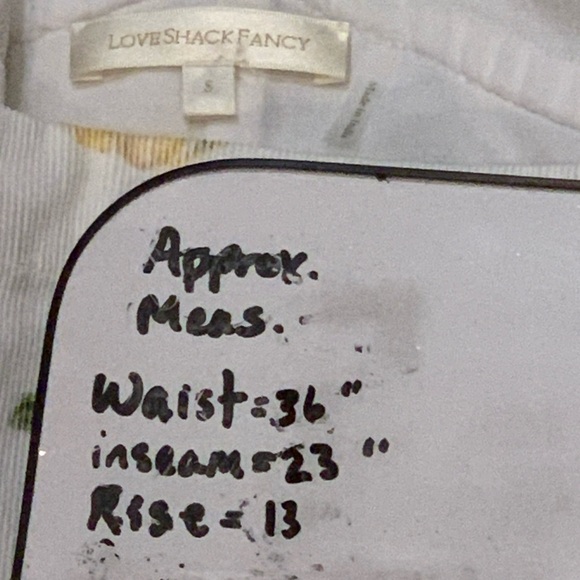 LOVESHACKFANCY
S
Approx.
Meas.
Waist=36"
inseam=23"
Rise=13